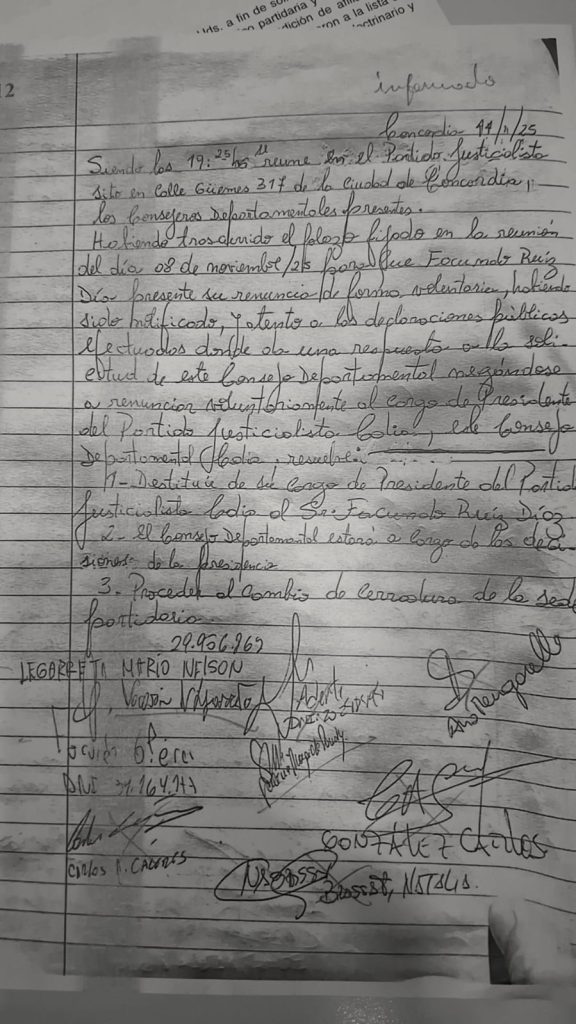 Uds. a fin de
partidaria y
dición de afili
ron a la lista
ctrinario y
12
informado
Concordia 11/11/25
Siendo las 19:25hs se reune en el Partido Justicialista
sito en Calle Güemes 317 de la ciudad de Concordia,
los Consejeros Departamentales presentes.
Habiendo trascurrido el plazo fijado en la reunión
del día 08 de noviembre/25 para que Facundo Ruiz
Díaz presente su renuncia de forma voluntaria, habiendo
sido notificado, y atento a las declaraciones públicas
efectuadas donde da una respuesta a la soli-
citud de este Consejo Departamental negándose
a renunciar voluntariamente al cargo de Presidente
del Partido Justicialista Cdia, este Consejo
Departamental Cdia. resuelve:
1- Destituir de su cargo de Presidente del Partid
Justicialista Cdia al Sr. Facundo Ruiz Díaz
2- El Consejo Departamental estará a cargo de las deci-
siones de la Presidencia
3. Proceder al cambio de cerradura de la sede
partidaria.
29.956.969
LEGARRETA MARIO NELSON
DNI
DNI
GONZALEZ CARLOS
CARLOS A. CACERES
NATALIA.